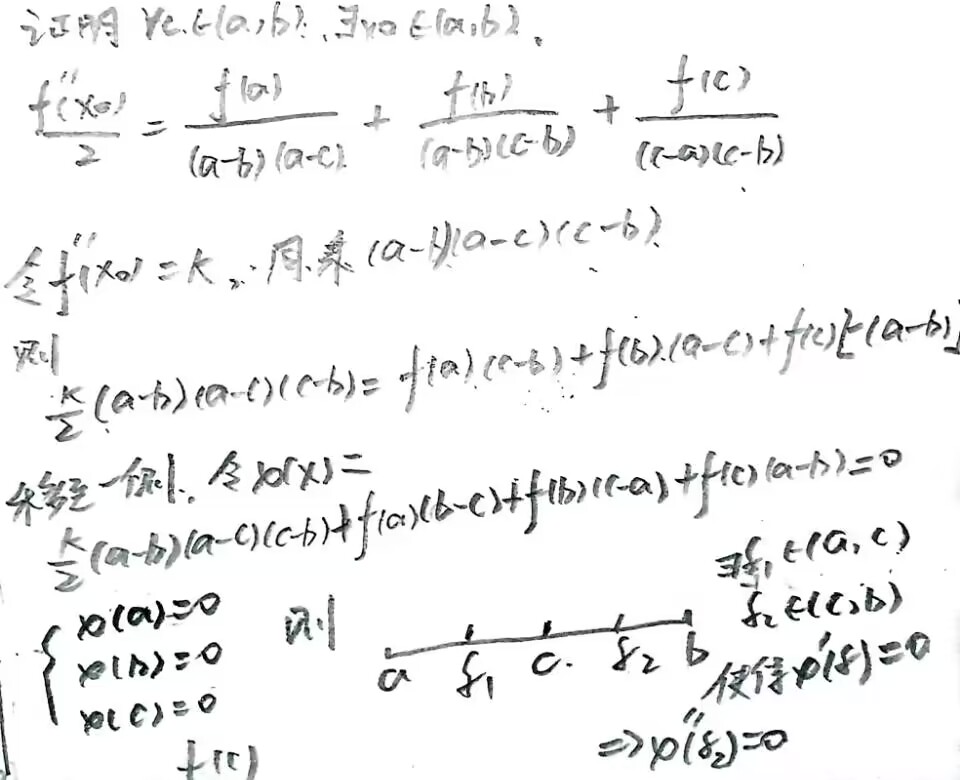 证明 ∀c∈(a,b), ∃x0∈(a,b),
f''(x0)/2 = f(a)/(a-b)(a-c) + f(b)/(a-b)(c-b) + f(c)/(c-a)(c-b)
令 f''(x0)=k, 同乘 (a-b)(a-c)(c-b)
则
k/2 (a-b)(a-c)(c-b)= f(a)(c-b)+f(b)(a-c)+f(c)[-(a-b)]
一侧, 令φ(x)=
k/2 (a-b)(a-c)(c-b)+f(a)(b-c)+f(b)(c-a)+f(c)(a-b)=0
{ φ(a)=0
φ(b)=0
φ(c)=0
则
a ξ1 c. ξ2 b
∃ξ1∈(a,c)
ξ2∈(c,b)
使得φ'(ξ)=0
⇒φ''(ξ2)=0
f(c)